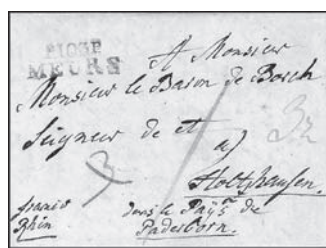 P103P
MEURS
A Monsieur
Monsieur le Baron de Borch
Seigneur de et
a)
Holtzhausen.
franco
Rhin
dans le Païs de
Paderborn.